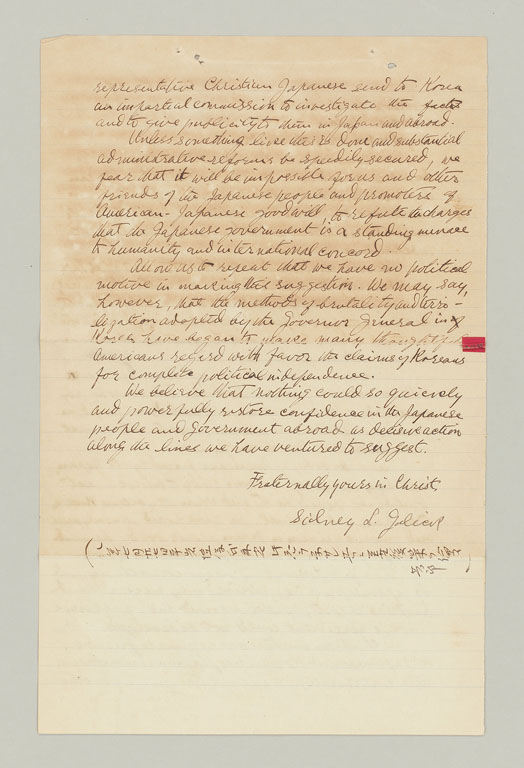 representative Christian Japanese send to Korea
an impartial commission to investigate the facts
and to give publicity to them in Japan and abroad.
Unless something like this is done and substantial
administrative reforms be speedily secured, we
fear that it will be impossible for us and other
friends of the Japanese people and promoters of
American-Japanese goodwill, to refute the charges
that the Japanese government is a standing menace
to humanity and international concord.
Allow us to repeat that we have no political
motive in making this suggestion. We may say,
however, that the methods of brutality and
adopted by the Governor General in
Korea have begun to make many thoughtful
Americans regard with favor the claims of Koreans
for complete political independence.
We believe that nothing could so quickly
and powerfully restore confidence in the Japanese
people and Government abroad as decisive action
along the lines we have ventured to suggest.
Fraternally yours in Christ,
Sidney L. Gulick